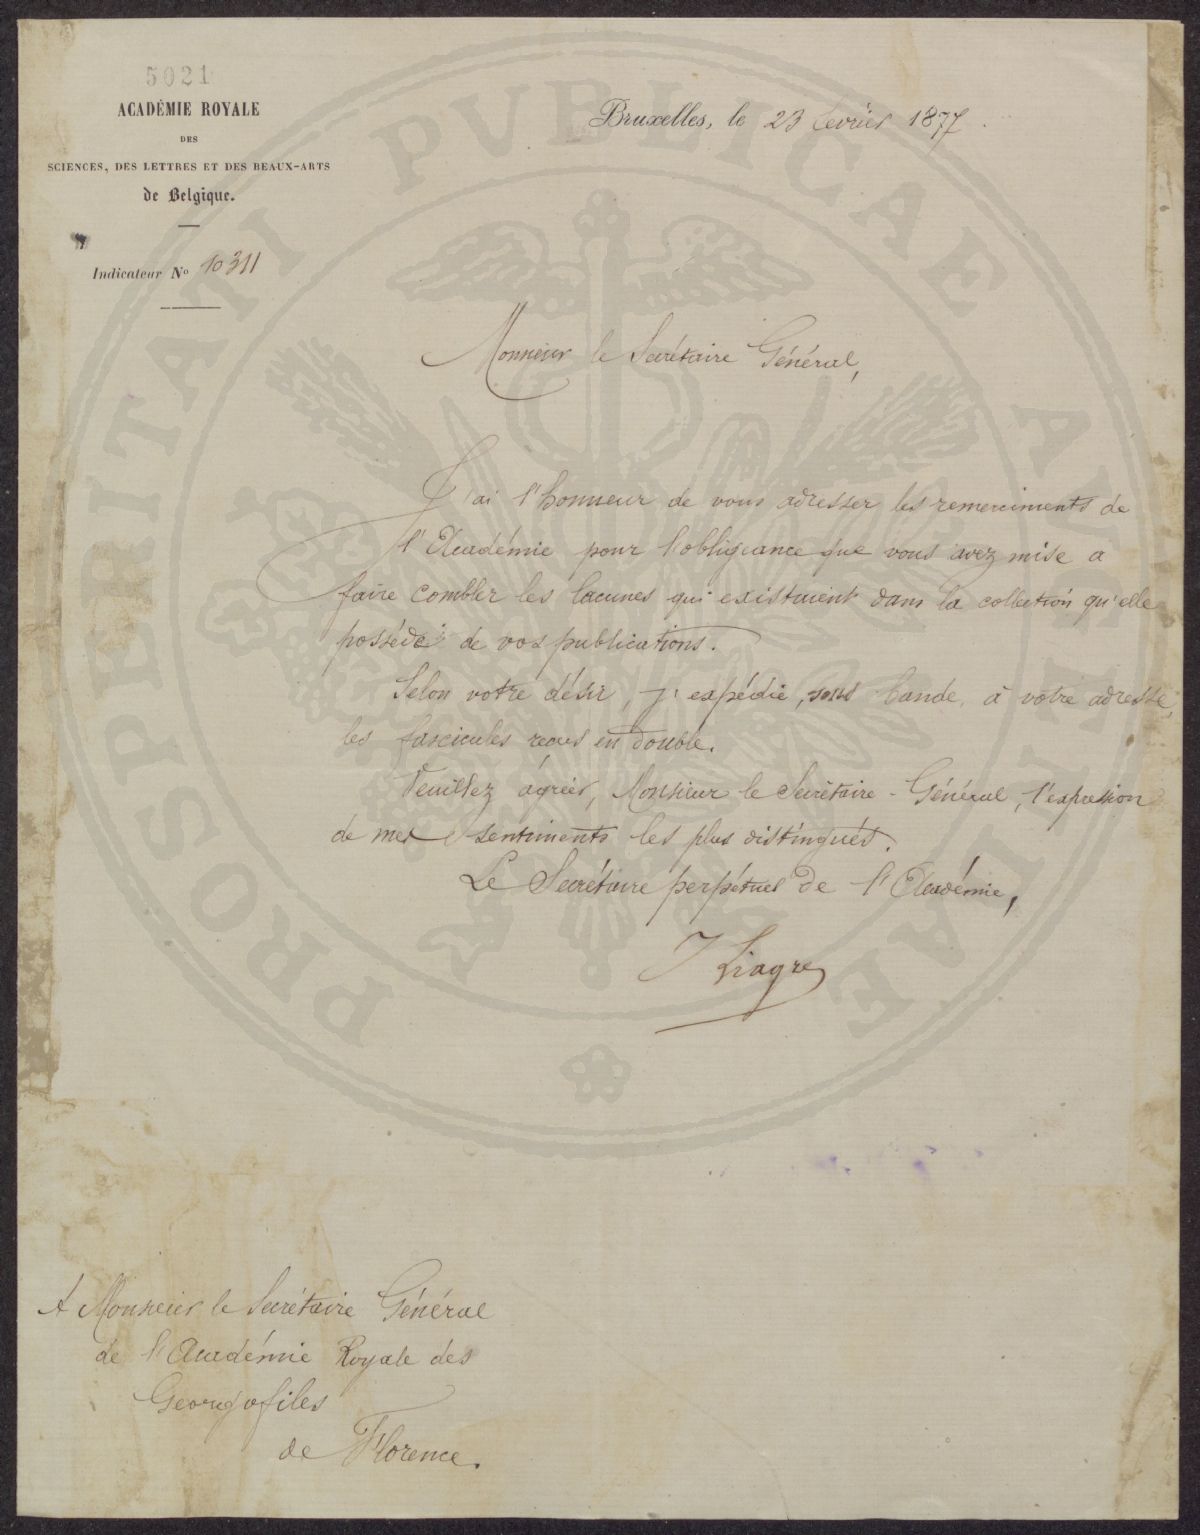 5021
ACADÉMIE ROYALE
DES
SCIENCES, DES LETTRES ET DES BEAUX-ARTS
de Belgique.
Indicateur No 10311
Bruxelles, le 23 Février 1877.
Monsieur le Secrétaire Général,
J'ai l'honneur de vous adresser les remerciments de
l'Académie pour l'obligeance que vous avez mise a
faire combler les lacunes qui existaient dans la collection qu'elle
possède de vos publications.
Selon votre désir, j'expédie, sous bande, à votre adresse,
les fascicules reçus en double.
Veuillez agréer, Monsieur le Secrétaire-Général, l'expression
de mes sentiments les plus distingués.
Le Secrétaire perpétuel de l'Académie,
J Liagre
A Monsieur le Secrétaire Général
de l'Académie Royale des
Georgofiles
de Florence.
PROSPERITATI PUBLICAE AUGENDAE